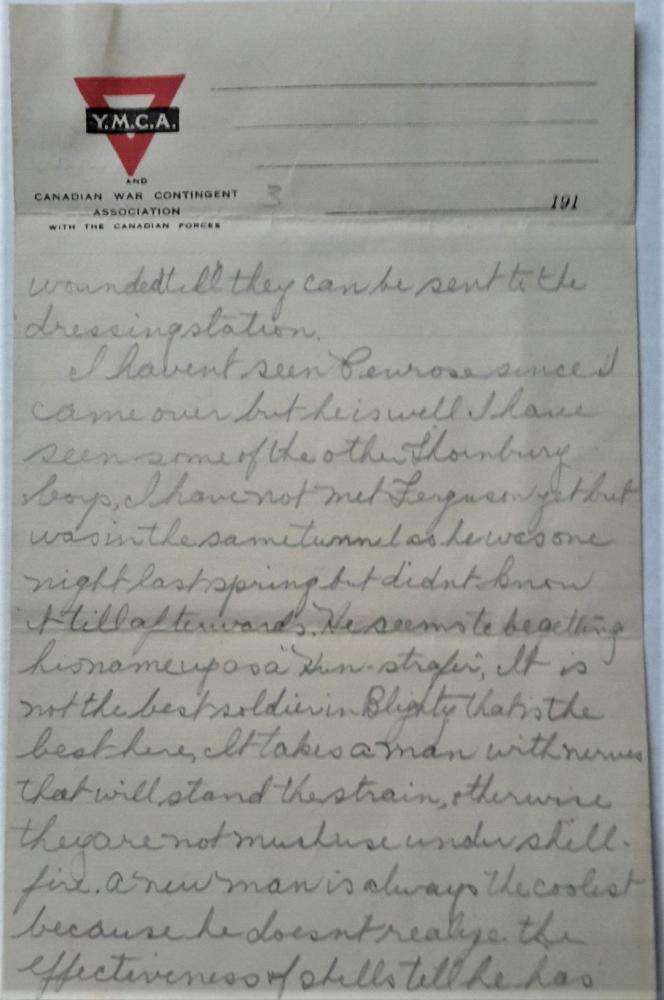 Y.M.C.A.
AND
CANADIAN WAR CONTINGENT
ASSOCIATION
WITH THE CANADIAN FORCES
3
191
wounded till they can be sent to the
dressing station.
I havent seen Penrose since I
came over but he is well I have
seen some of the other Thornbury
boys, I have not met Ferguson yet but
was in the same tunnel as he was one
night last spring but didnt know
it till afterwards. He seems to be getting
his name up as a "Hun-strafer", It is
not the best soldier in Blighty that is the
best here, It takes a man with nerves
that will stand the strain, otherwise
they are not much use under shell-
fire. A new man is always the coolest
because he doesnt realize the
effectiveness of shells tell he has